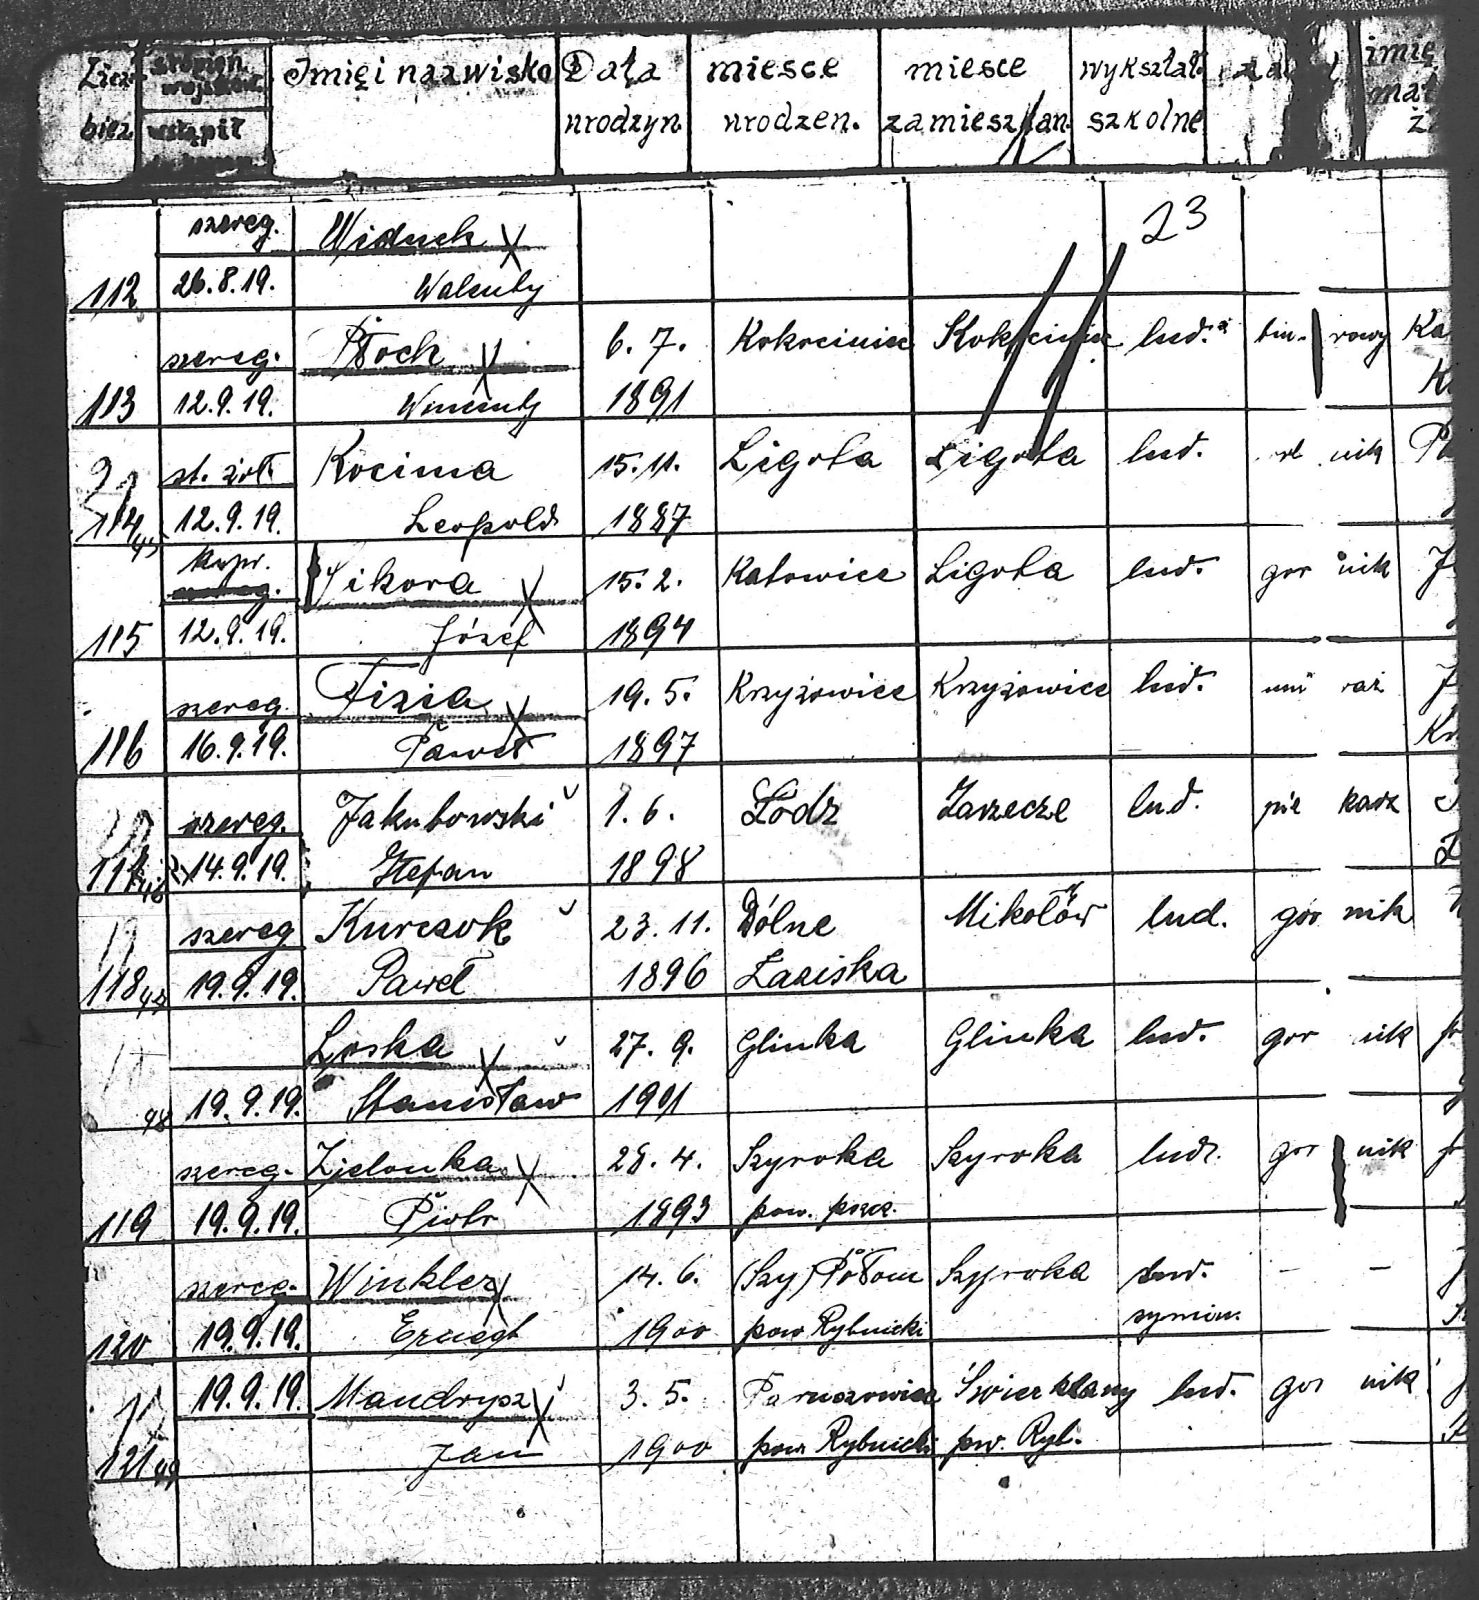 Licz. stopień wojskow. Imię i nazwisko Data miesce miesce wykształ. imię
bież. wstąpił urodzyn. urodzen. zamieszkan. szkolne
23
szereg. Widuch
112 26.8.19. Walenty
szereg. Płoch 6. 7. Kokociniec Kokociniec lud. rowy Ka
113 12.9.19. Wincenty 1891
st. żoł. Kocima 15.11. Ligota Ligota lud. nik
114 12.9.19. Leopold 1887
45
kapr.
szereg. Sikora 15.2. Katowice Ligota lud. gor nik J
115 12.9.19. Józef 1894
szereg. Fizia 19.5. Krzyżowice Krzyżowice lud. mu raż J
116 16.9.19. Paweł 1897 Kr
szereg. Jakubowski 1. 6. Łódz Zarzecze lud. pie karz
117 14.9.19. Stefan 1898
46
szereg Kurczok 23.11. Dólne Mikołów lud. gor nik
118 19.9.19. Paweł 1896 Łaziska
47
Loska 27. 9. Glinka Glinka lud. gor nik
48 19.9.19. Stanisław 1901
szereg. Zielonka 28. 4. Szyroka Szyroka ludz. gor nik
119 19.9.19. Piotr 1893 pow. pszcz.
szereg. Winkler 14. 6. (Szy) Połom Szyroka lud. - -
120 19.9.19. Ernest 1900 pow Rybnicki
19.9.19. Mandrysz 3. 5. Paruszowice Świerklany lud. gor nik
121 49 Jan 1900 pow Rybnicki pw. Ryb.